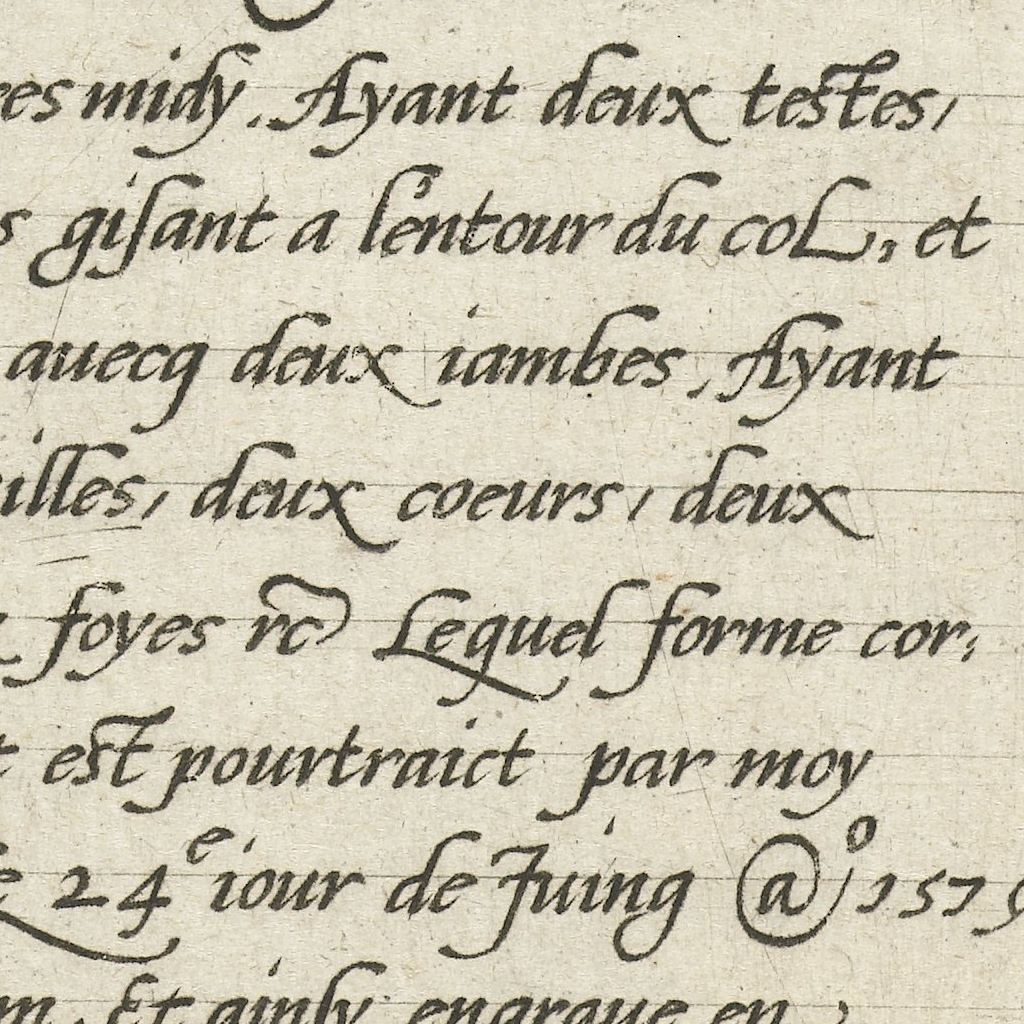 es midy. Ayant deux testes,
s giſant a l'entour du col, et
auecq deux iambes, Ayant
illes, deux coeurs, deux
foyes rc Lequel forme cor:
t est pourtraict par moy
e 24e iour de Juing @o 157
m. Et ainſy engraue en